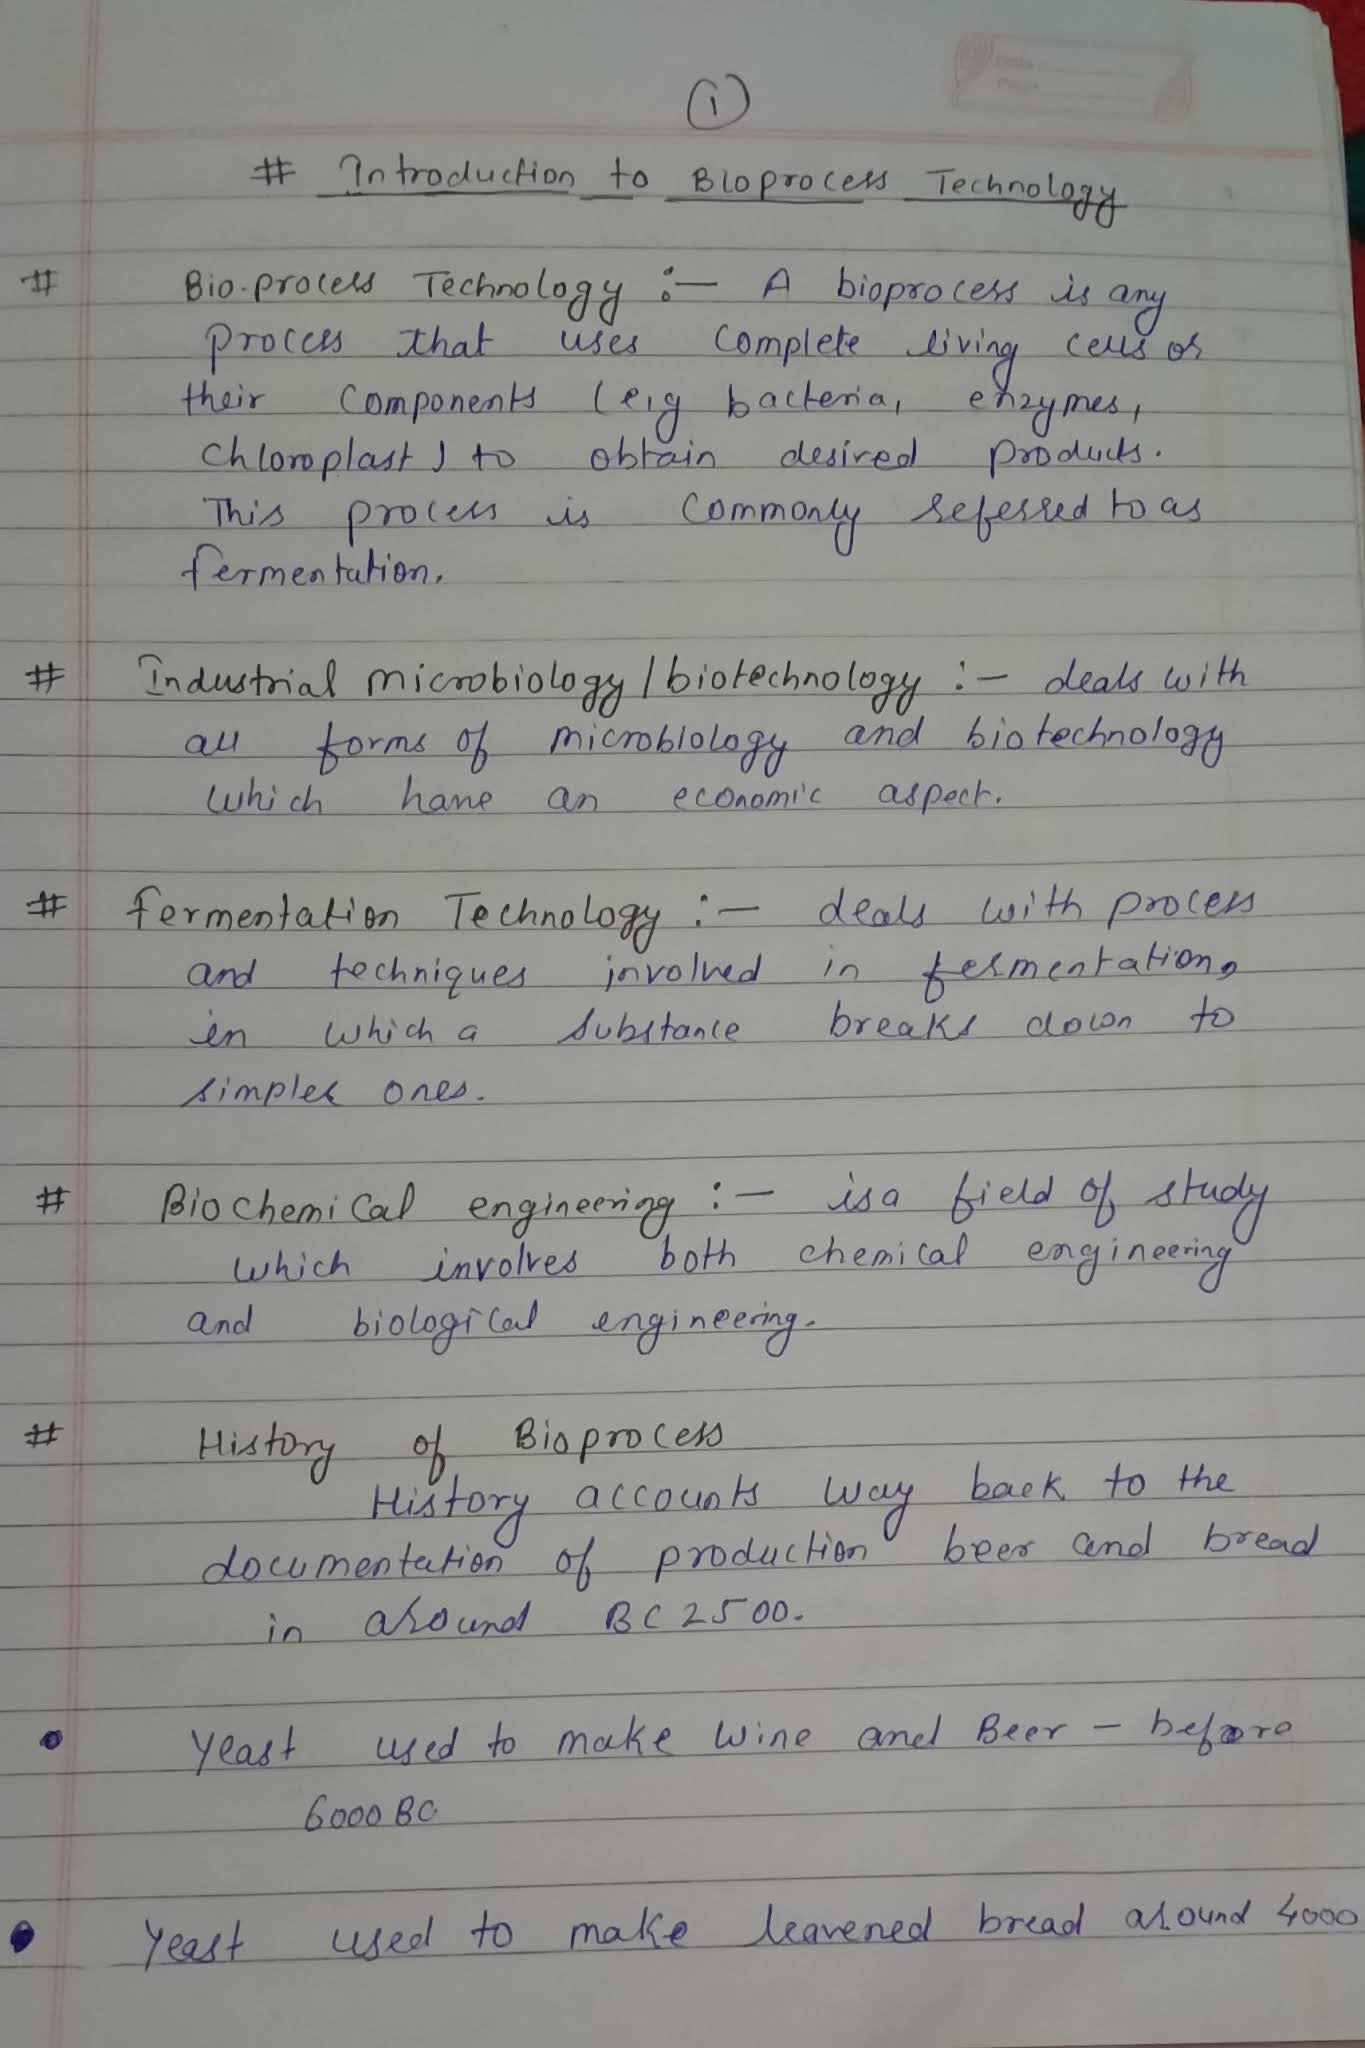 ①
# Introduction to Bioprocess Technology
# Bio-process Technology :- A bioprocess is any
process that uses complete living cells or
their components (e,g bacteria, enzymes,
chloroplast) to obtain desired products.
This process is commonly referred to as
fermentation.
# Industrial microbiology / biotechnology :- deals with
all forms of microbiology and biotechnology
which have an economic aspect.
# fermentation Technology :- deals with process
and techniques involved in fermentation,
in which a substance breaks down to
simpler ones.
# Biochemical engineering :- is a field of study
which involves both chemical engineering
and biological engineering.
# History of Bioprocess
History accounts way back to the
documentation of production beer and bread
in around BC 2500.
• Yeast used to make wine and Beer - before
6000 BC
• Yeast used to make leavened bread around 4000